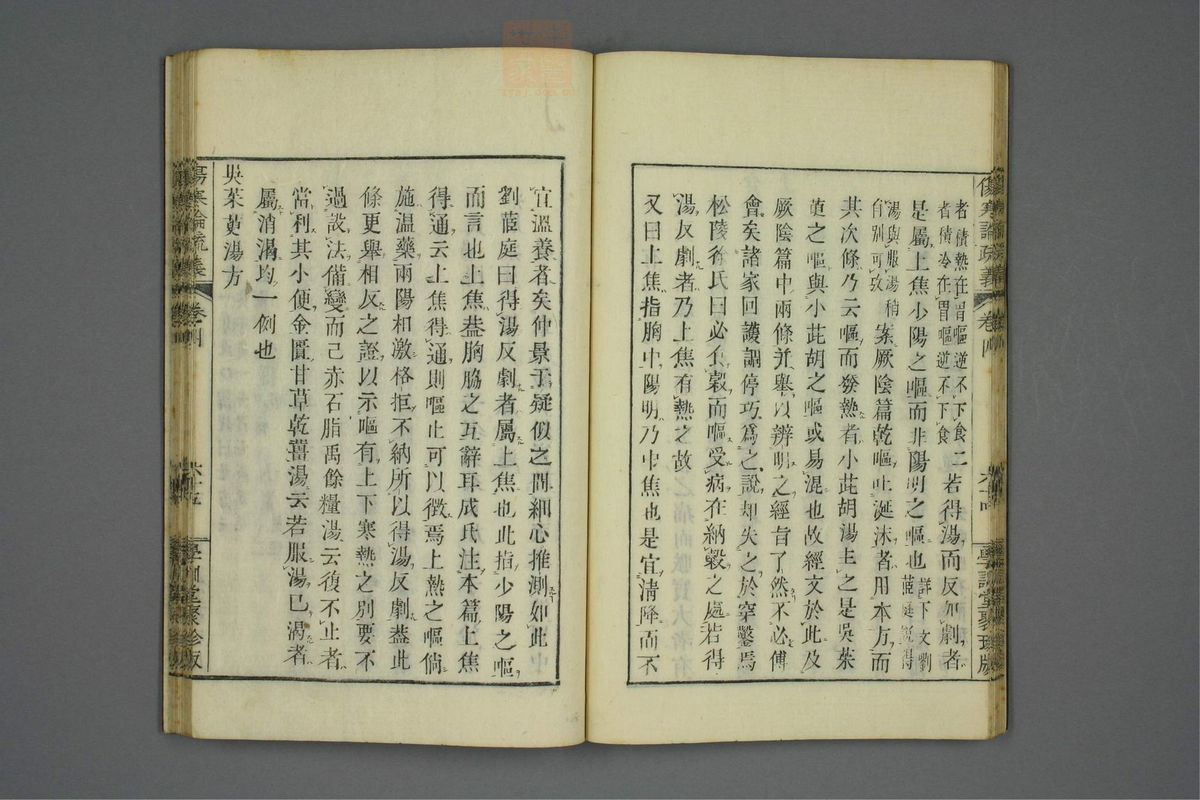 傷寒論疏義 卷四 六十四 學訓堂聚珍版
者積熱在胃嘔逆不下食
者積冷在胃嘔逆不下食
二若得湯而反加劇者
是屬上焦少陽之嘔而非陽明之嘔也
詳下文劉
茝庭說得
湯與服湯稍
自別可攷
案厥陰篇乾嘔吐涎沫者用本方而
其次條乃云嘔而發熱者小茈胡湯主之是吳茱
萸之嘔與小茈胡之嘔或易混也故經文於此及
厥陰篇中兩條并擧以辨明之經旨了然不必傅
會矣諸家回護調停巧爲之說却失之於穿鑿焉
松陵徐氏曰必食穀而嘔受病在納穀之處若得
湯反劇者乃上焦有熱之故
又曰上焦指胸中陽明乃中焦也是宜淸降而不
宜溫養者矣仲景于疑似之間細心推測如此
劉茝庭曰得湯反劇者屬上焦也此指少陽之嘔
而言也上焦葢胸脇之互辭耳成氏注本篇上焦
得通云上焦得通則嘔止可以徵焉上熱之嘔倘
施溫藥兩陽相激格拒不納所以得湯反劇葢此
條更舉相反之證以示嘔有上下寒熱之別要不
過設法備變而已赤石脂禹餘糧湯云復不止者
當利其小便金匱甘草乾薑湯云若服湯已渴者
屬消渴均一例也
吳茱萸湯方
傷寒論疏義 卷四 六十五 學訓堂聚珍版